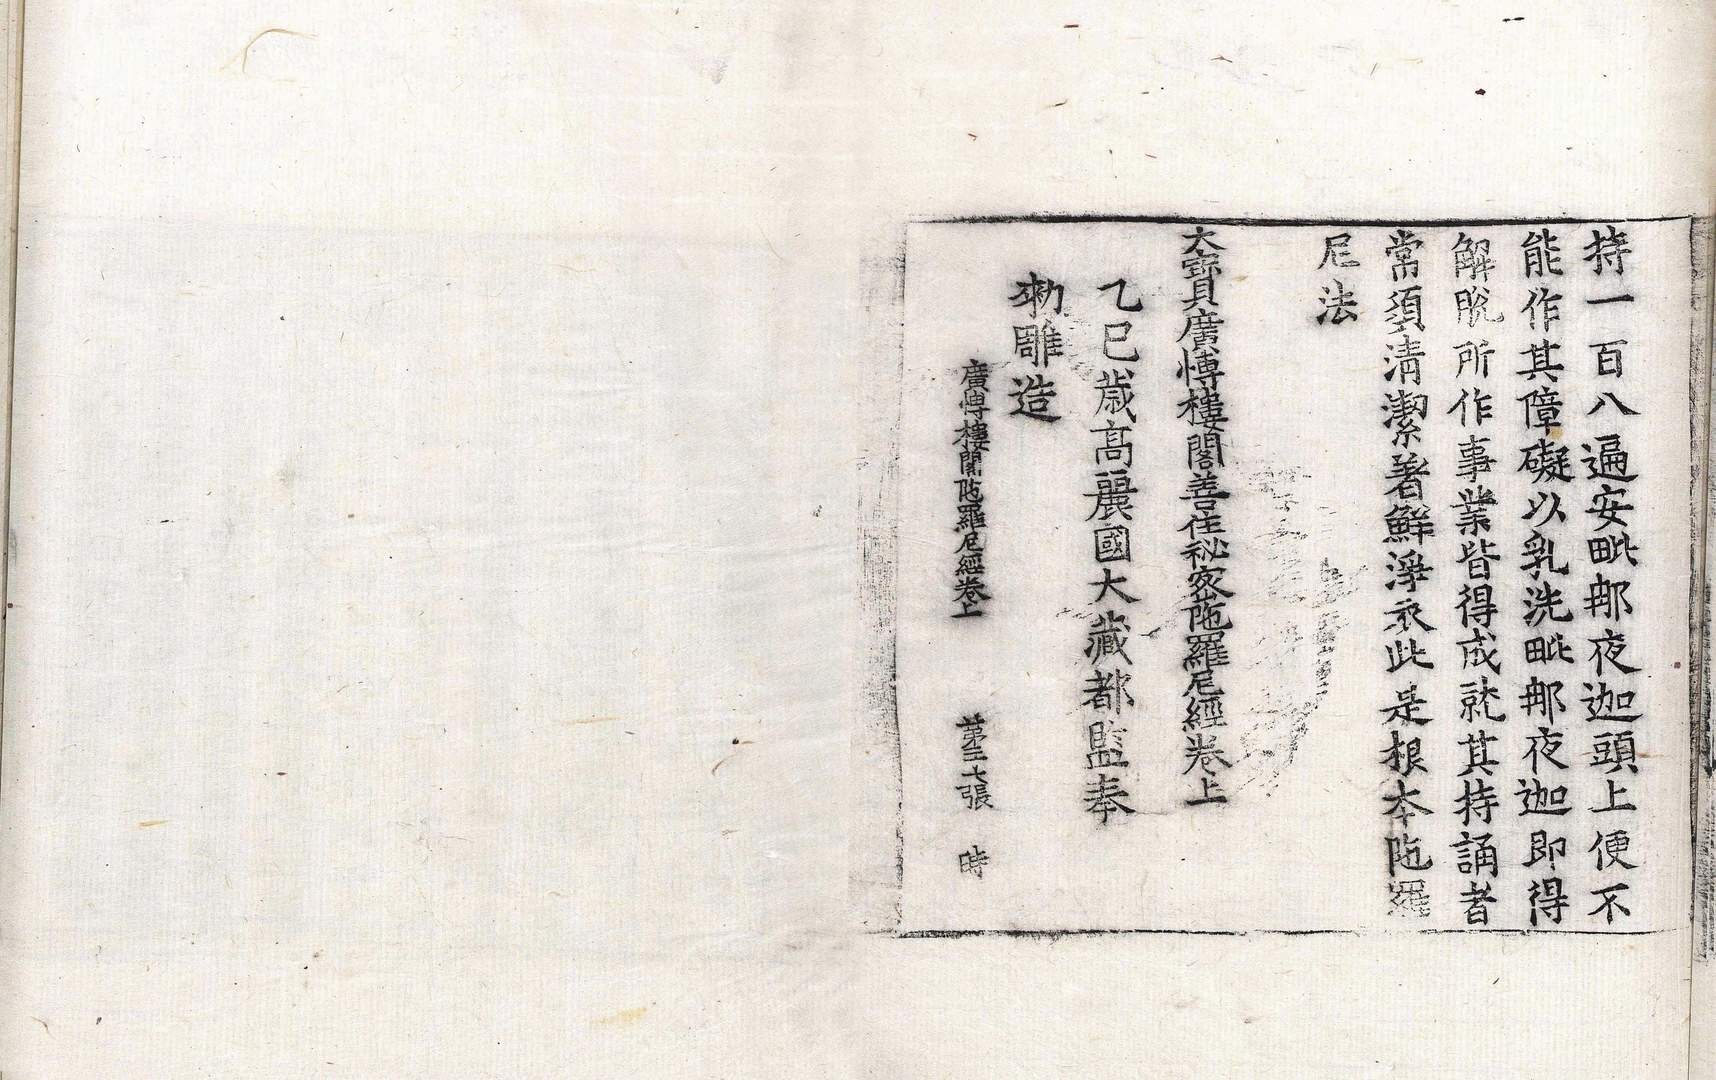 持一百八遍安毗那夜迦頭上便不
能作其障礙以乳洗毗那夜迦即得
解脫所作事業皆得成就其持誦者
常須清潔著鮮淨衣此是根本陁羅
尼法
大寶廣愽樓閣善住祕密陁羅尼經卷上
乙巳歲高麗國大藏都監奉
勑雕造
廣愽樓閣陁羅尼經卷上 第二十七張 時